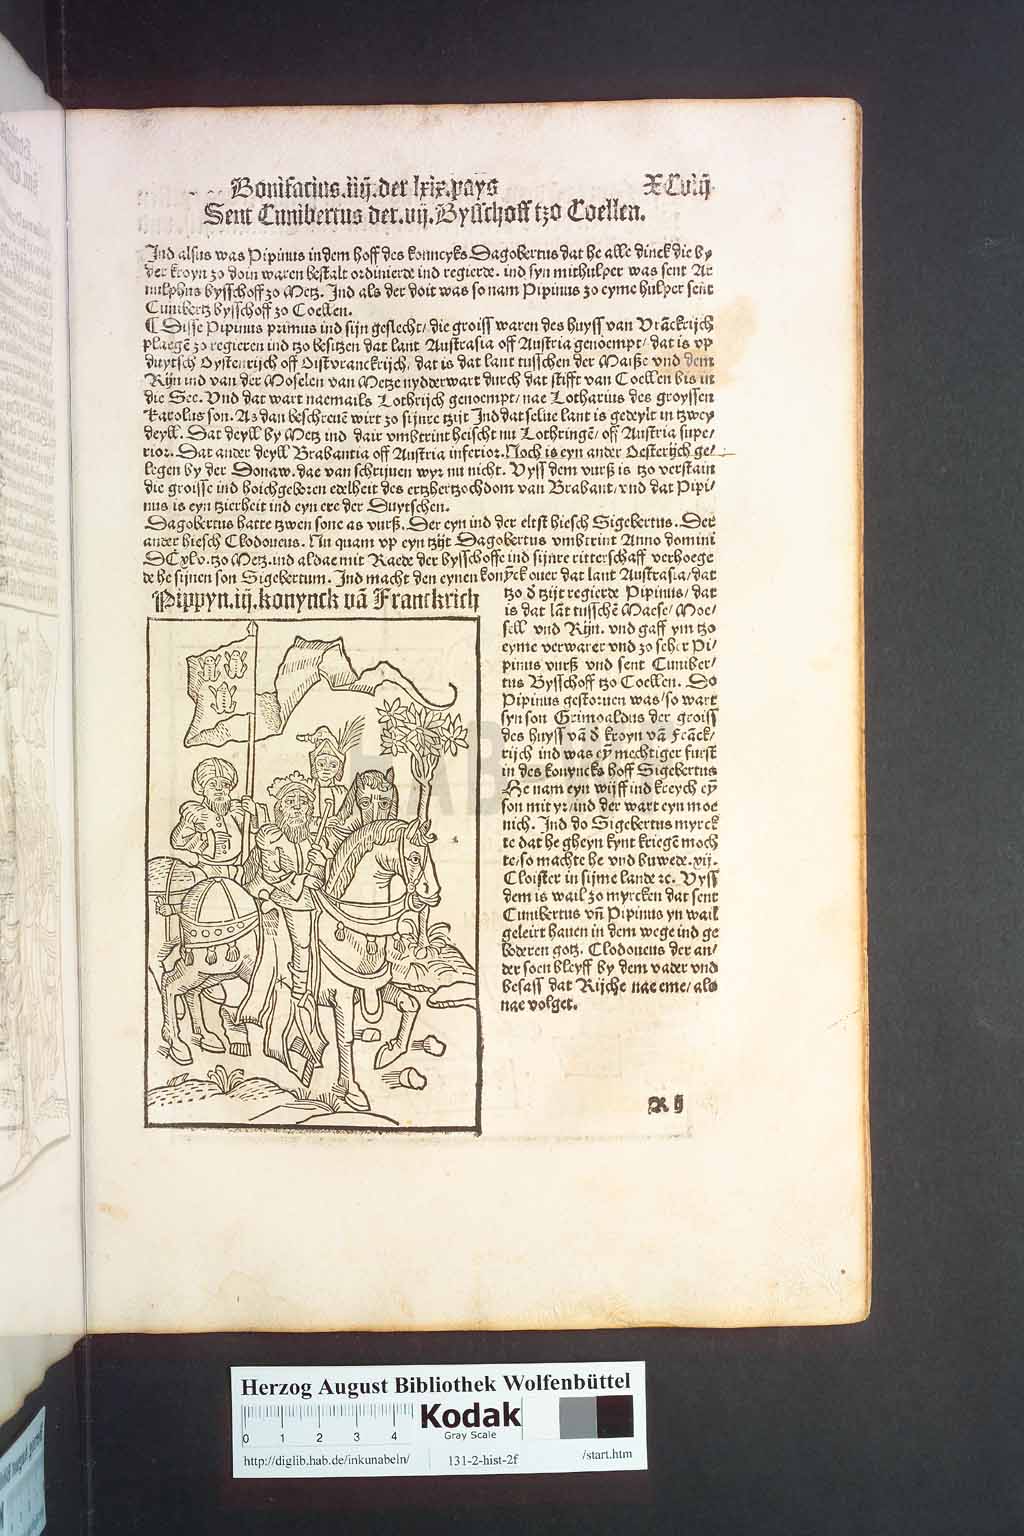 Bonifacius.iiij.der lxix.pays XCviij.
Sent Cunibertus der.vij.Bysschoff tzo Coellen.
Ind alsus was Pipinus in dem hoff des konneyks Dagobertus dat he alle dinck die by
der kroyn zo doin waren bestalt ordinierde ind regierde. ind syn mithulper was sent Ar
nulphus bysschoff zo Metz. Ind als der doit was so nam Pipinus zo eyme hulper sent
Cunibertz bysschoff zo Coellen.
¶ Disse Pipinus primus ind sijn geslecht/ die groiss waren des huyss van Vrāckrijch
plaegē zo regieren ind tzo besitzen dat lant Austrasia off Austria genoempt/ dat is vp
duytsch Oystenrijch off Oistvranckrijch/ dat is dat lant tusschen der Maiße vnd dem
Rijn ind van der Moselen van Metze nydderwart durch dat stifft van Coellen bis in
die See. Vnd dat wart naemails Lothrijch genoempt/ nae Lotharius des groyssen
Karolus son. As dan beschreuē wirt zo sijnre tzijt Ind dat selue lant is gedeylt in tzwey
deyll. Dat deyll by Metz ind dair vmbtrint heischt nu Lothringē/ off Austria supe/
rior. Dat ander deyll Brabantia off Austria inferior. Noch is eyn ander Oesterijch ge/
legen by der Donaw. dae van schrijuen wyr nu nicht. Vyss dem vurß is tzo verstain
die groisse ind hoichgeboren edelheit des ertzhertzochdom van Brabant/ vnd dat Pipi/
nus is eyn tzierheit ind eyn ere der Duytschen.
Dagobertus hatte tzwen sone as vurß. Der eyn ind der eltst hiesch Sigebertus. Der
ander hiesch Clodoueus. Nu quam vp eyn tzijt Dagobertus vmbtrint Anno domini
DCxlv. tzo Metz. ind aldae mit Raede der bysschoffe ind sijnre ritterschaff verhoege
de he sijnen son Sigebertum. Ind macht den eynen konyck ouer dat lant Austrasia/ dat
Pippyn.iij.konynck vā Franckrich
tzo d' tzijt regierde Pipinus/ dat
is dat lāt tusschē Maese/ Moe/
sell vnd Rijn. vnd gaff ym tzo
eyme verwarer vnd zo scher Pi/
pinus vurß vnd sent Cuniber/
tus Bysschoff tzo Coellen. Do
Pipinus gestoruen was/ so wart
syn son Grimoaldus der groiss
des huyss vā d' kroyn vā Frāck/
rijch ind was eyn mechtiger furst
in des konyncks hoff Sigebertus
He nam eyn wijff ind kreych eyn
son mit yr/ ind der wart eyn moe
nich. Ind do Sigebertus myrck
te dat he gheyn kynt kriegē moch
te/ so machte he vnd buwede. xij.
Cloister in sijme lande ꝛc. Vyss
dem is wail zo myrcken dat sent
Cunibertus vn̄ Pipinus yn wail
geleirt hauen in dem wege ind ge
boderen gotz. Clodoueus der an/
der soen bleyff by dem vader vnd
besass dat Rijche nae eme/ als
nae volget.
R ij
Herzog August Bibliothek Wolfenbüttel
0 1 2 3 4
Kodak
Gray Scale
http://diglib.hab.de/inkunabeln/ 131-2-hist-2f /start.htm